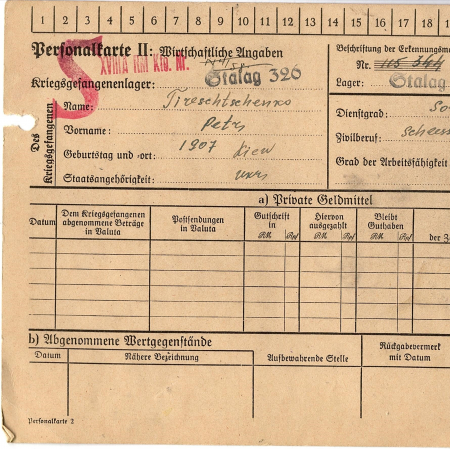 1 2 3 4 5 6 7 8 9 10 11 12 13 14 15 16 17 18
Personalkarte II: Wirtschaftliche Angaben
Beschriftung der Erkennungsma
XVIIIA KM Kto. Nr.
Nr. 115 344
Kriegsgefangenenlager: Stalag 326
Lager: Stalag
Des Kriegsgefangenen
Name: Tireschtschenko
Dienstgrad: So
Vorname: Petr
Zivilberuf:
Geburtstag und -ort: 1907 Kiew
Grad der Arbeitsfähigkeit
Staatsangehörigkeit: ukr
a) Private Geldmittel
Datum
Dem Kriegsgefangenen abgenommene Beträge in Valuta
Postsendungen in Valuta
Gutschrift in
RM Rpf
Hiervon ausgezahlt
RM Rpf
Bleibt Guthaben
RM Rpf
der
b) Abgenommene Wertgegenstände
Datum
Nähere Bezeichnung
Aufbewahrende Stelle
Rückgabevermerk mit Datum
Personalkarte 2